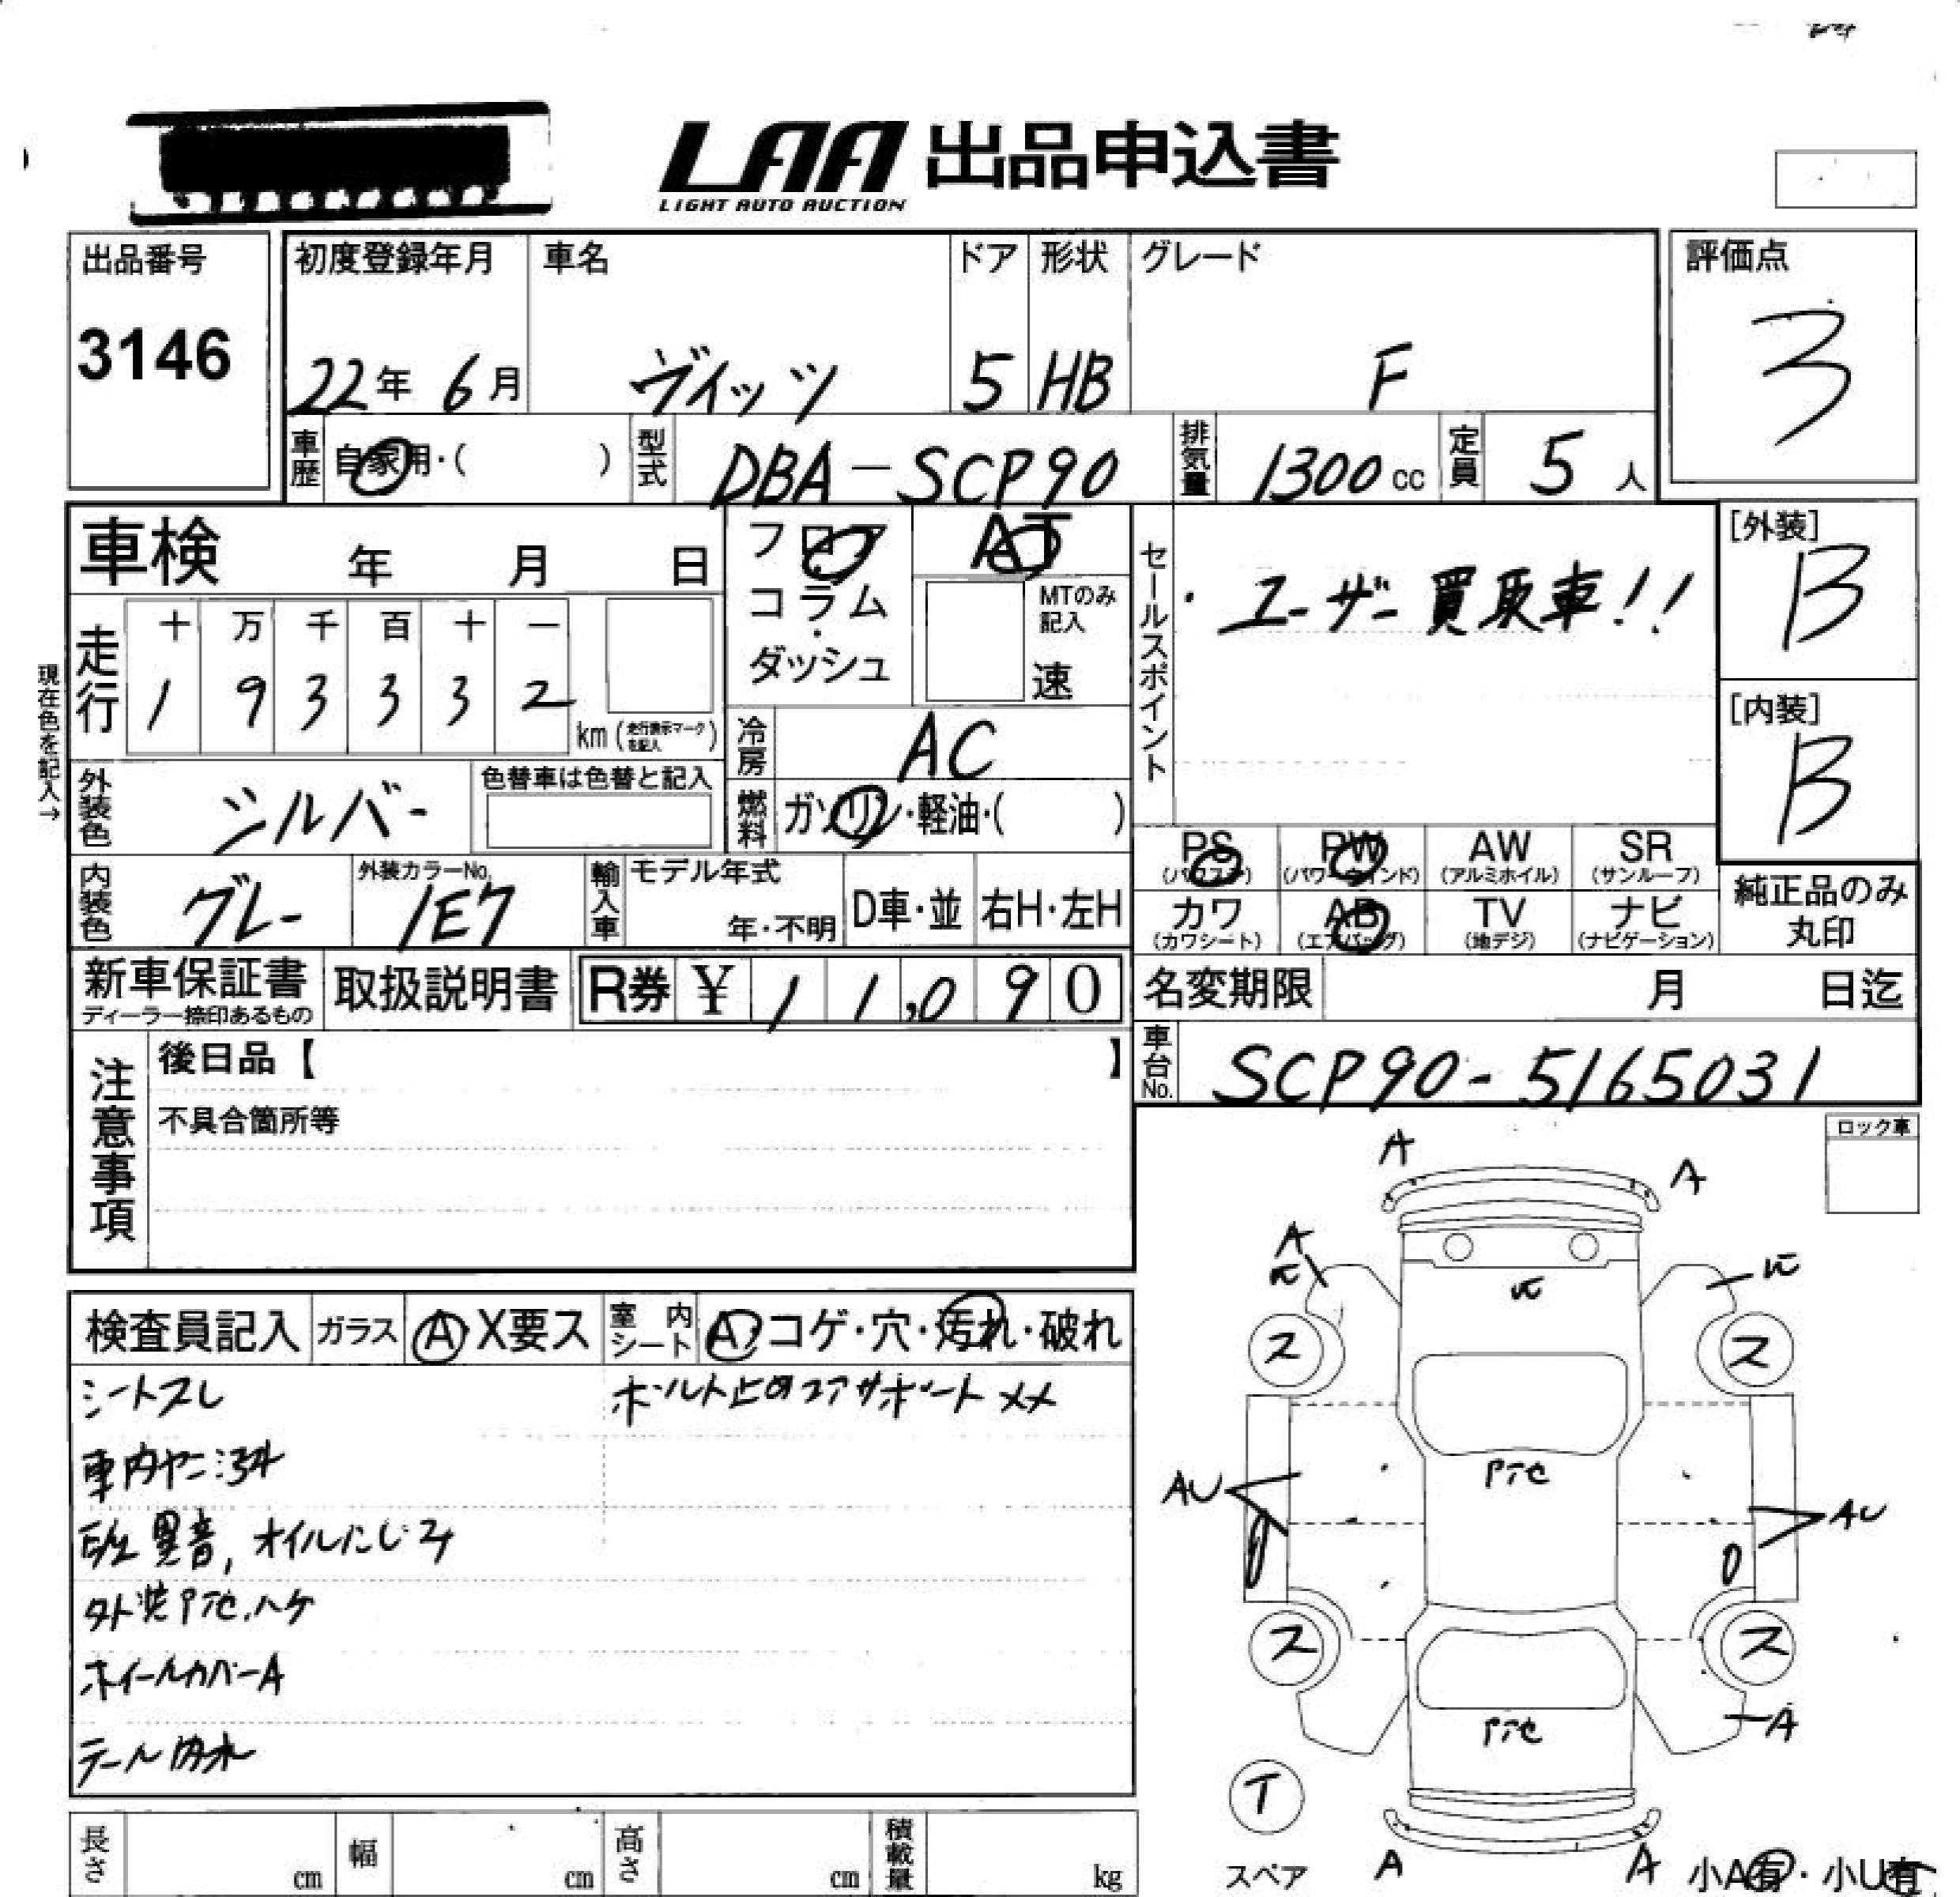 LAA 出品申込書
LIGHT AUTO AUCTION
出品番号
3146
初度登録年月
22年 6月
車名
ヴィッツ
ドア
5
形状
HB
グレード
F
評価点
3
車歴
自家用・( )
型式
DBA-SCP90
排気量
1300cc
定員
5人
車検 年 月 日
フロア
コラム
・
ダッシュ
AT
MTのみ
記入
速
セールスポイント
・ユーザー買取車!!
[外装]
B
[内装]
B
現在色を記入→
走行
十 万 千 百 十 一
1 9 3 3 3 2
km(走行表示マークを記入)
冷房
AC
外装色
シルバー
色替車は色替と記入
燃料
ガソリン・軽油・( )
内装色
グレー
外装カラーNo.
1E7
輸入車
モデル年式
年・不明
D車・並
右H・左H
PS
(パワステ)
PW
(パワーウインド)
AW
(アルミホイル)
SR
(サンルーフ)
カワ
(カワシート)
AB
(エアバッグ)
TV
(地デジ)
ナビ
(ナビゲーション)
純正品のみ
丸印
新車保証書
ディーラー捺印あるもの
取扱説明書
R券 ¥ 1 1,0 9 0
名変期限 月 日迄
車台No.
SCP90-5165031
注意事項
後日品【 】
不具合箇所等
ロック車
検査員記入
ガラス
A X要ス
室内シート
A コゲ・穴・汚れ・破れ
シートスレ
ボルト止めコアサポートXX
車内ヤニ
異音,オイルにじみ
外装
ハケ
ホイールカバーA
テール内水
A
A
A
ス
ス
AU
AU
ス
ス
A
T
スペア
A
A
小A有・小U有
長さ cm
幅 cm
高さ cm
積載量 kg